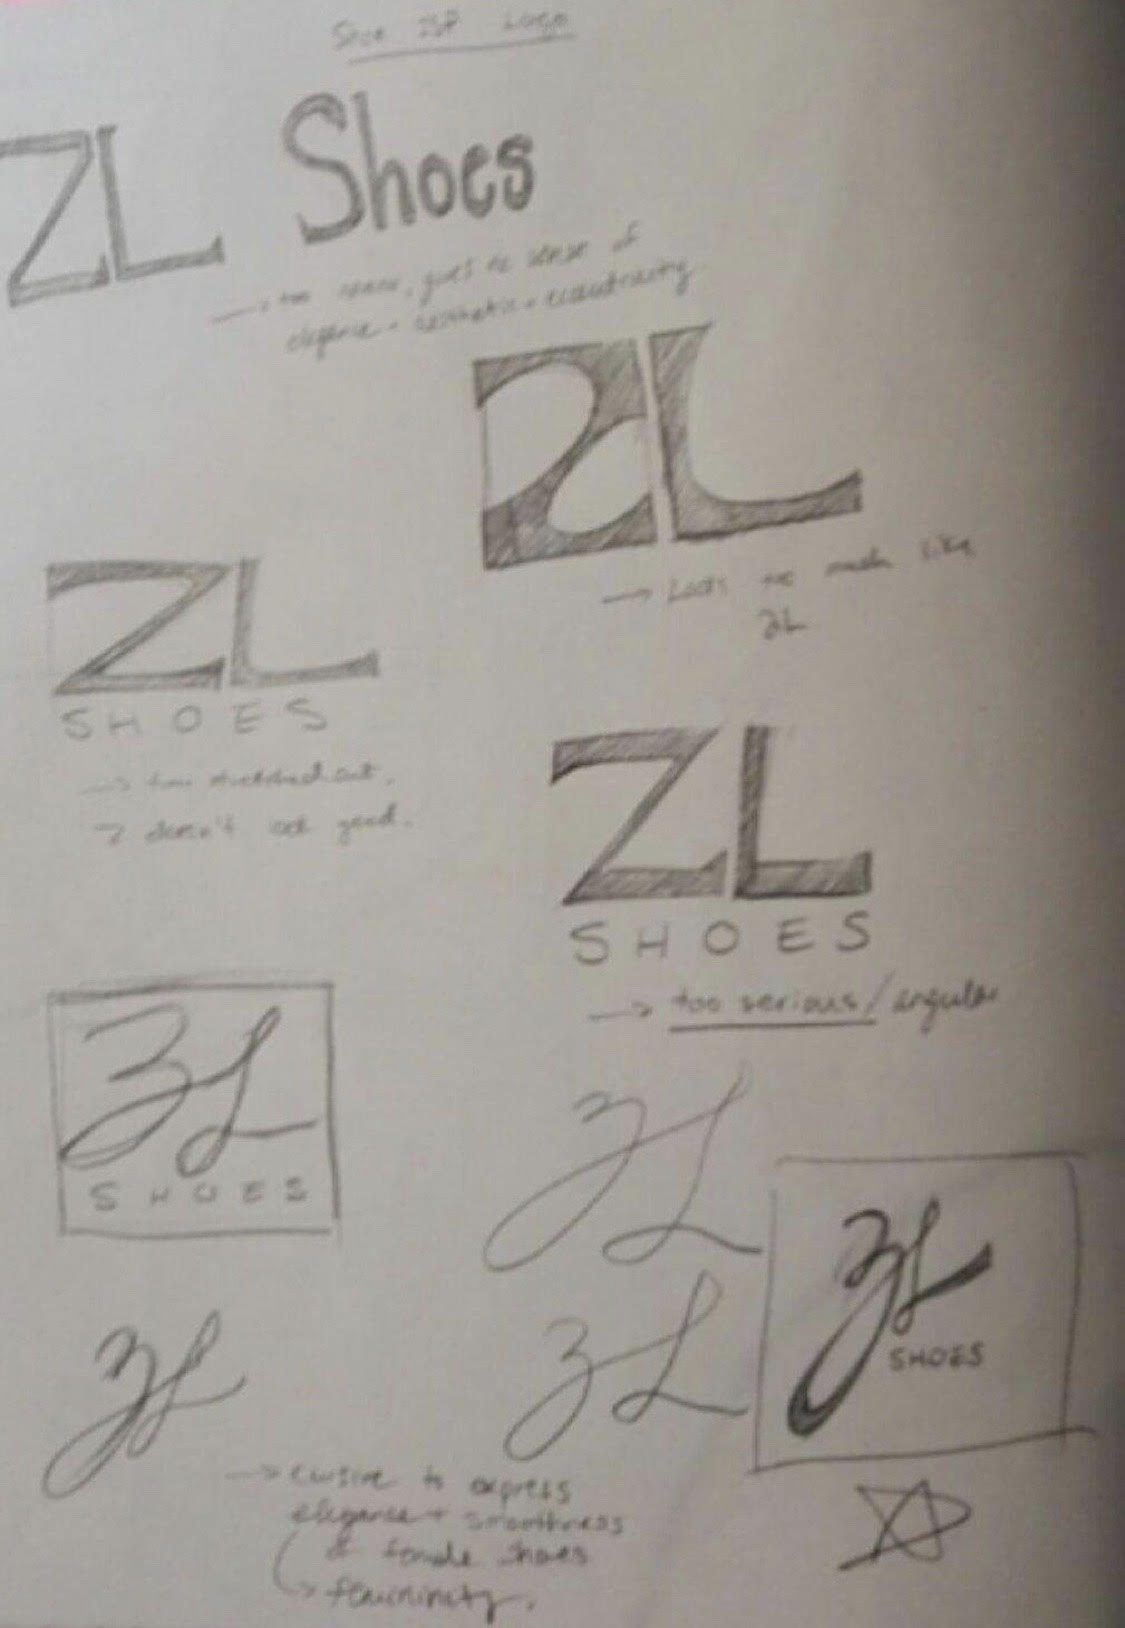 Logo
ZL Shoes
sense of
elegance + aesthetic +
ZL
→ Looks too much like
ZL
ZL
SHOES
→ too stretched out.
Z doesn't look good.
ZL
SHOES
→ too serious/angular
ZL
SHOES
ZL
ZL
SHOES
ZL
ZL
→ cursive to express
elegance + smoothness
of female shoes
→ femininity.